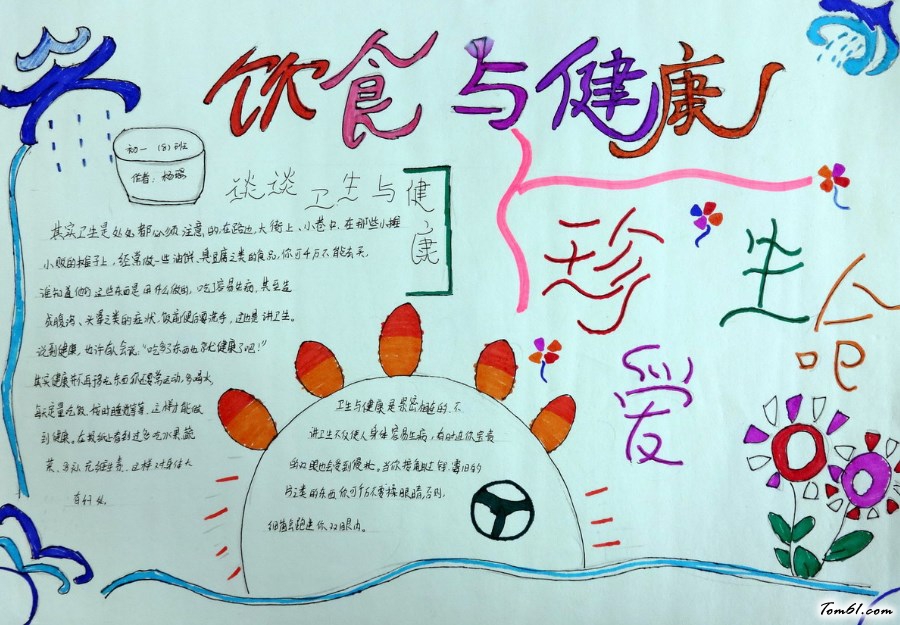 饮食与健康
初一 (8)班
作者:杨瑶
谈谈卫生与健康
其实卫生是处处都必须注意的,在路边,大街上,小巷口,在那些小摊
小贩的摊子上,经常做一些油饼、臭豆腐之类的食品,你可千万不能去买,
谁知道他们这些东西是用什么做的,吃了容易生病,甚至造
成腹泻、头晕之类的症状,饭前便后要洗手,这也是讲卫生。
说到健康,也许有人会说:“吃多东西也不就健康了吧!”
其实健康并不再按吃东西,你还要常运动,多喝水,
每天定量吃饭,按时睡觉等等,这样才能做
到健康。在报纸上看到过多吃水果蔬
菜,多补充维生素,这样对身体大
有好处。
珍爱生命吧
卫生与健康是紧密相连的,不
讲卫生不仅使人身体容易生病,有时在你宝贵
的双眼也会受到侵扰。当你摸
之类的东西,你可千万不要揉眼睛,否则,
细菌会跑进你双眼内。
Tom61.com